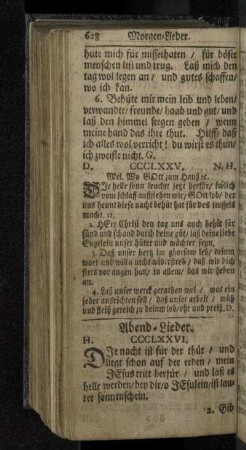 628 Morgen-Lieder.
hüte mich für missethaten / für böser
menschen list und trug. Laß mich den
tag wol legen an / und gutes schaffen/
wo ich kan.
6. Behüte mir mein leib und leben/
verwandte/ freunde/ haab und gut/ und
laß den himmel segen geben / wenn
meine hand das ihre thut. Hilff/ daß
ich alles wol verricht! du wirst es thun/
ich zweifle nicht. G.
D. CCCLXXV. N. H.
Mel. Wo GOtt zum Hauß ꝛc.
DIe helle sonn leucht jetzt herfür/ frölich
vom schlaff auffstehen wir/ GOtt lob/ der
uns heunt diese nacht behüt hat für des teufels
macht. ꝛc.
2. HErr Christ den tag uns auch behüt für
sünd und schand durch deine güt/ laß deine liebe
Engelein unser hüter und wächter seyn,
3. Daß unser hertz im ghorsam leb/ deinem
wort und willn nicht widerstreb / daß wir dich
stets vor augen han/ in allem/ das wir heben
an.
4. Laß unser werck gerathen wol / was ein
jeder ausrichten soll / daß unser arbeit / müh
und fleiß gereich zu deinem lob/ ehr und preiß. D.
Abend-Lieder.
H. CCCLXXVI.
DIe nacht ist für der thür / und
liegt schon auf der erden / mein
JEsus tritt herfür / und laß es
helle werden/ bey dir/ o JEsulein/ ist lau-
ter sonnenschein.
2. Gib